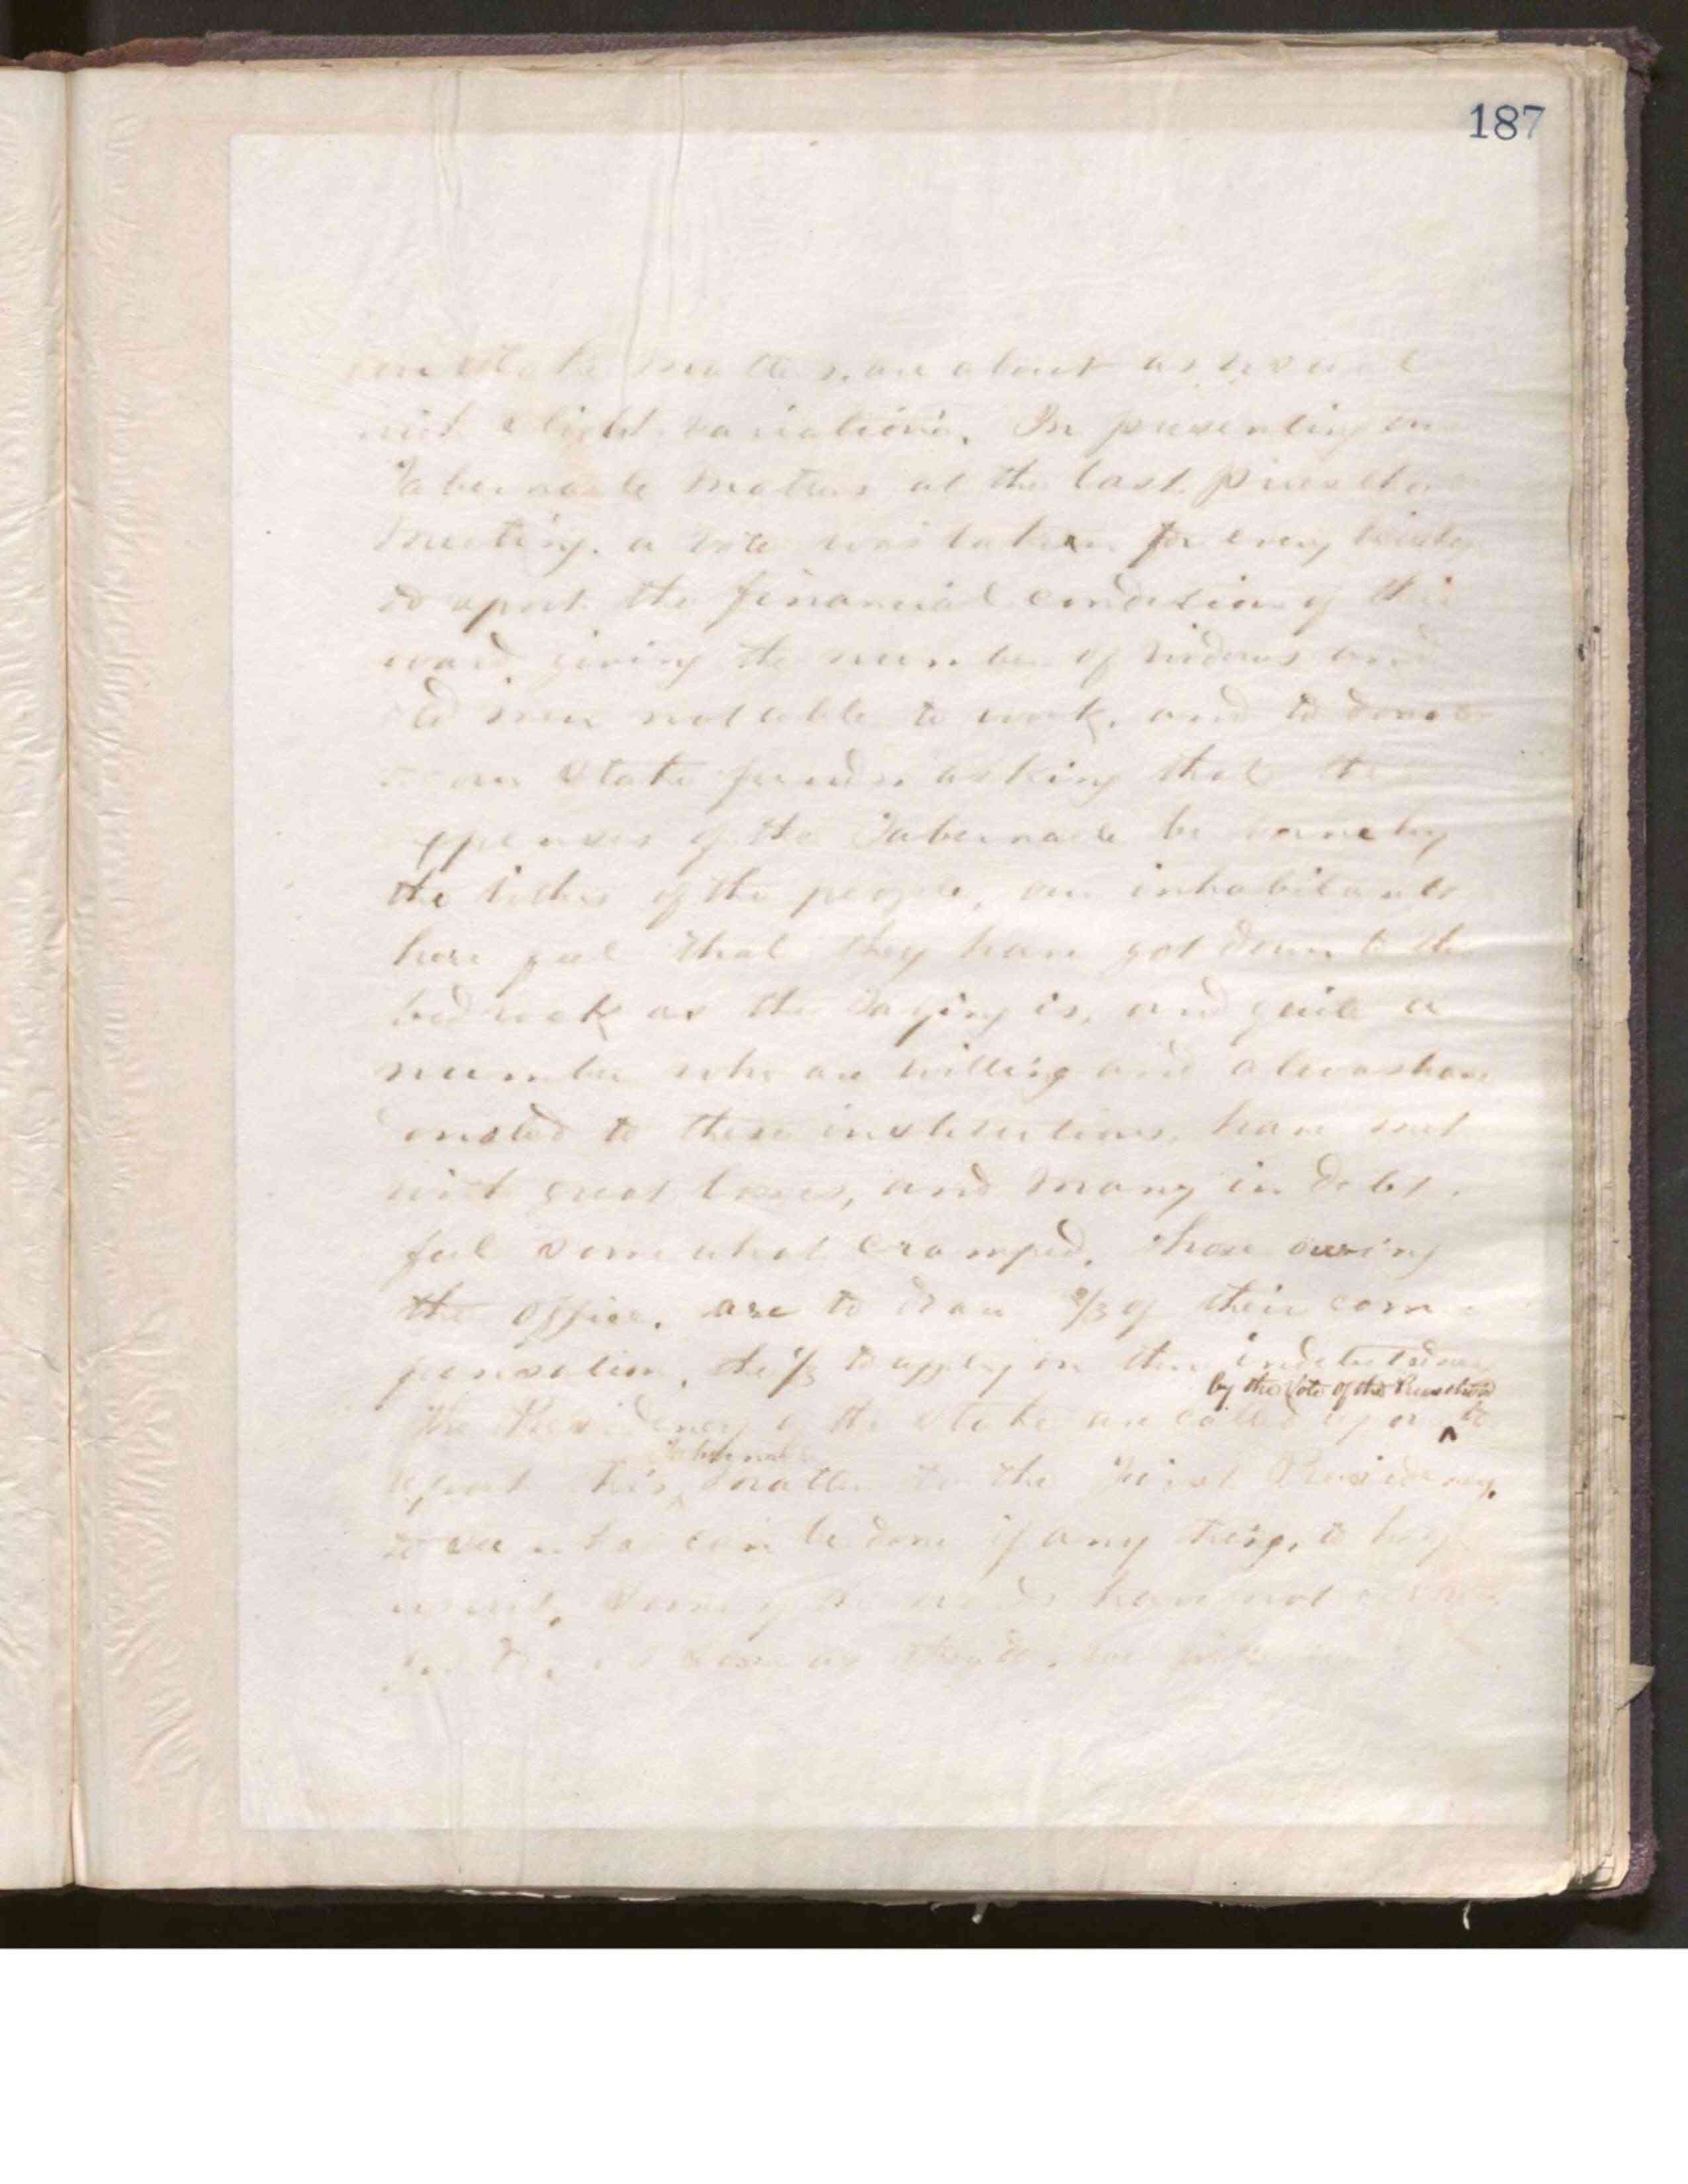 187
our Stake matters, are about as usual
with slight variations. In presenting our
Tabernacle matters at the last Priesthood
meeting, a vote was taken for every bishop
to report the financial condition of their
ward, giving the number of widows and
old men not able to work, and to donate
to our Stake funds asking that the
expenses of the Tabernacle be borne by
the tithes of the people, our inhabitants
here feel that they have got down to the
bed rock as the saying is, and quite a
number who are willing and always have
donated to these institutions, have met
with great losses, and many in debt.
feel some what cramped, those owing
the office, are to draw 2/3 of their com
pensation, the 1/3 to apply on their indebtedness
by the Vote of the Priesthood
The Presidency of the Stake are called upon to
Tabernacle
report this matter to the First Presidency,
to see what can be done if any thing, to
some of the wards have not
as soon as they do, we will